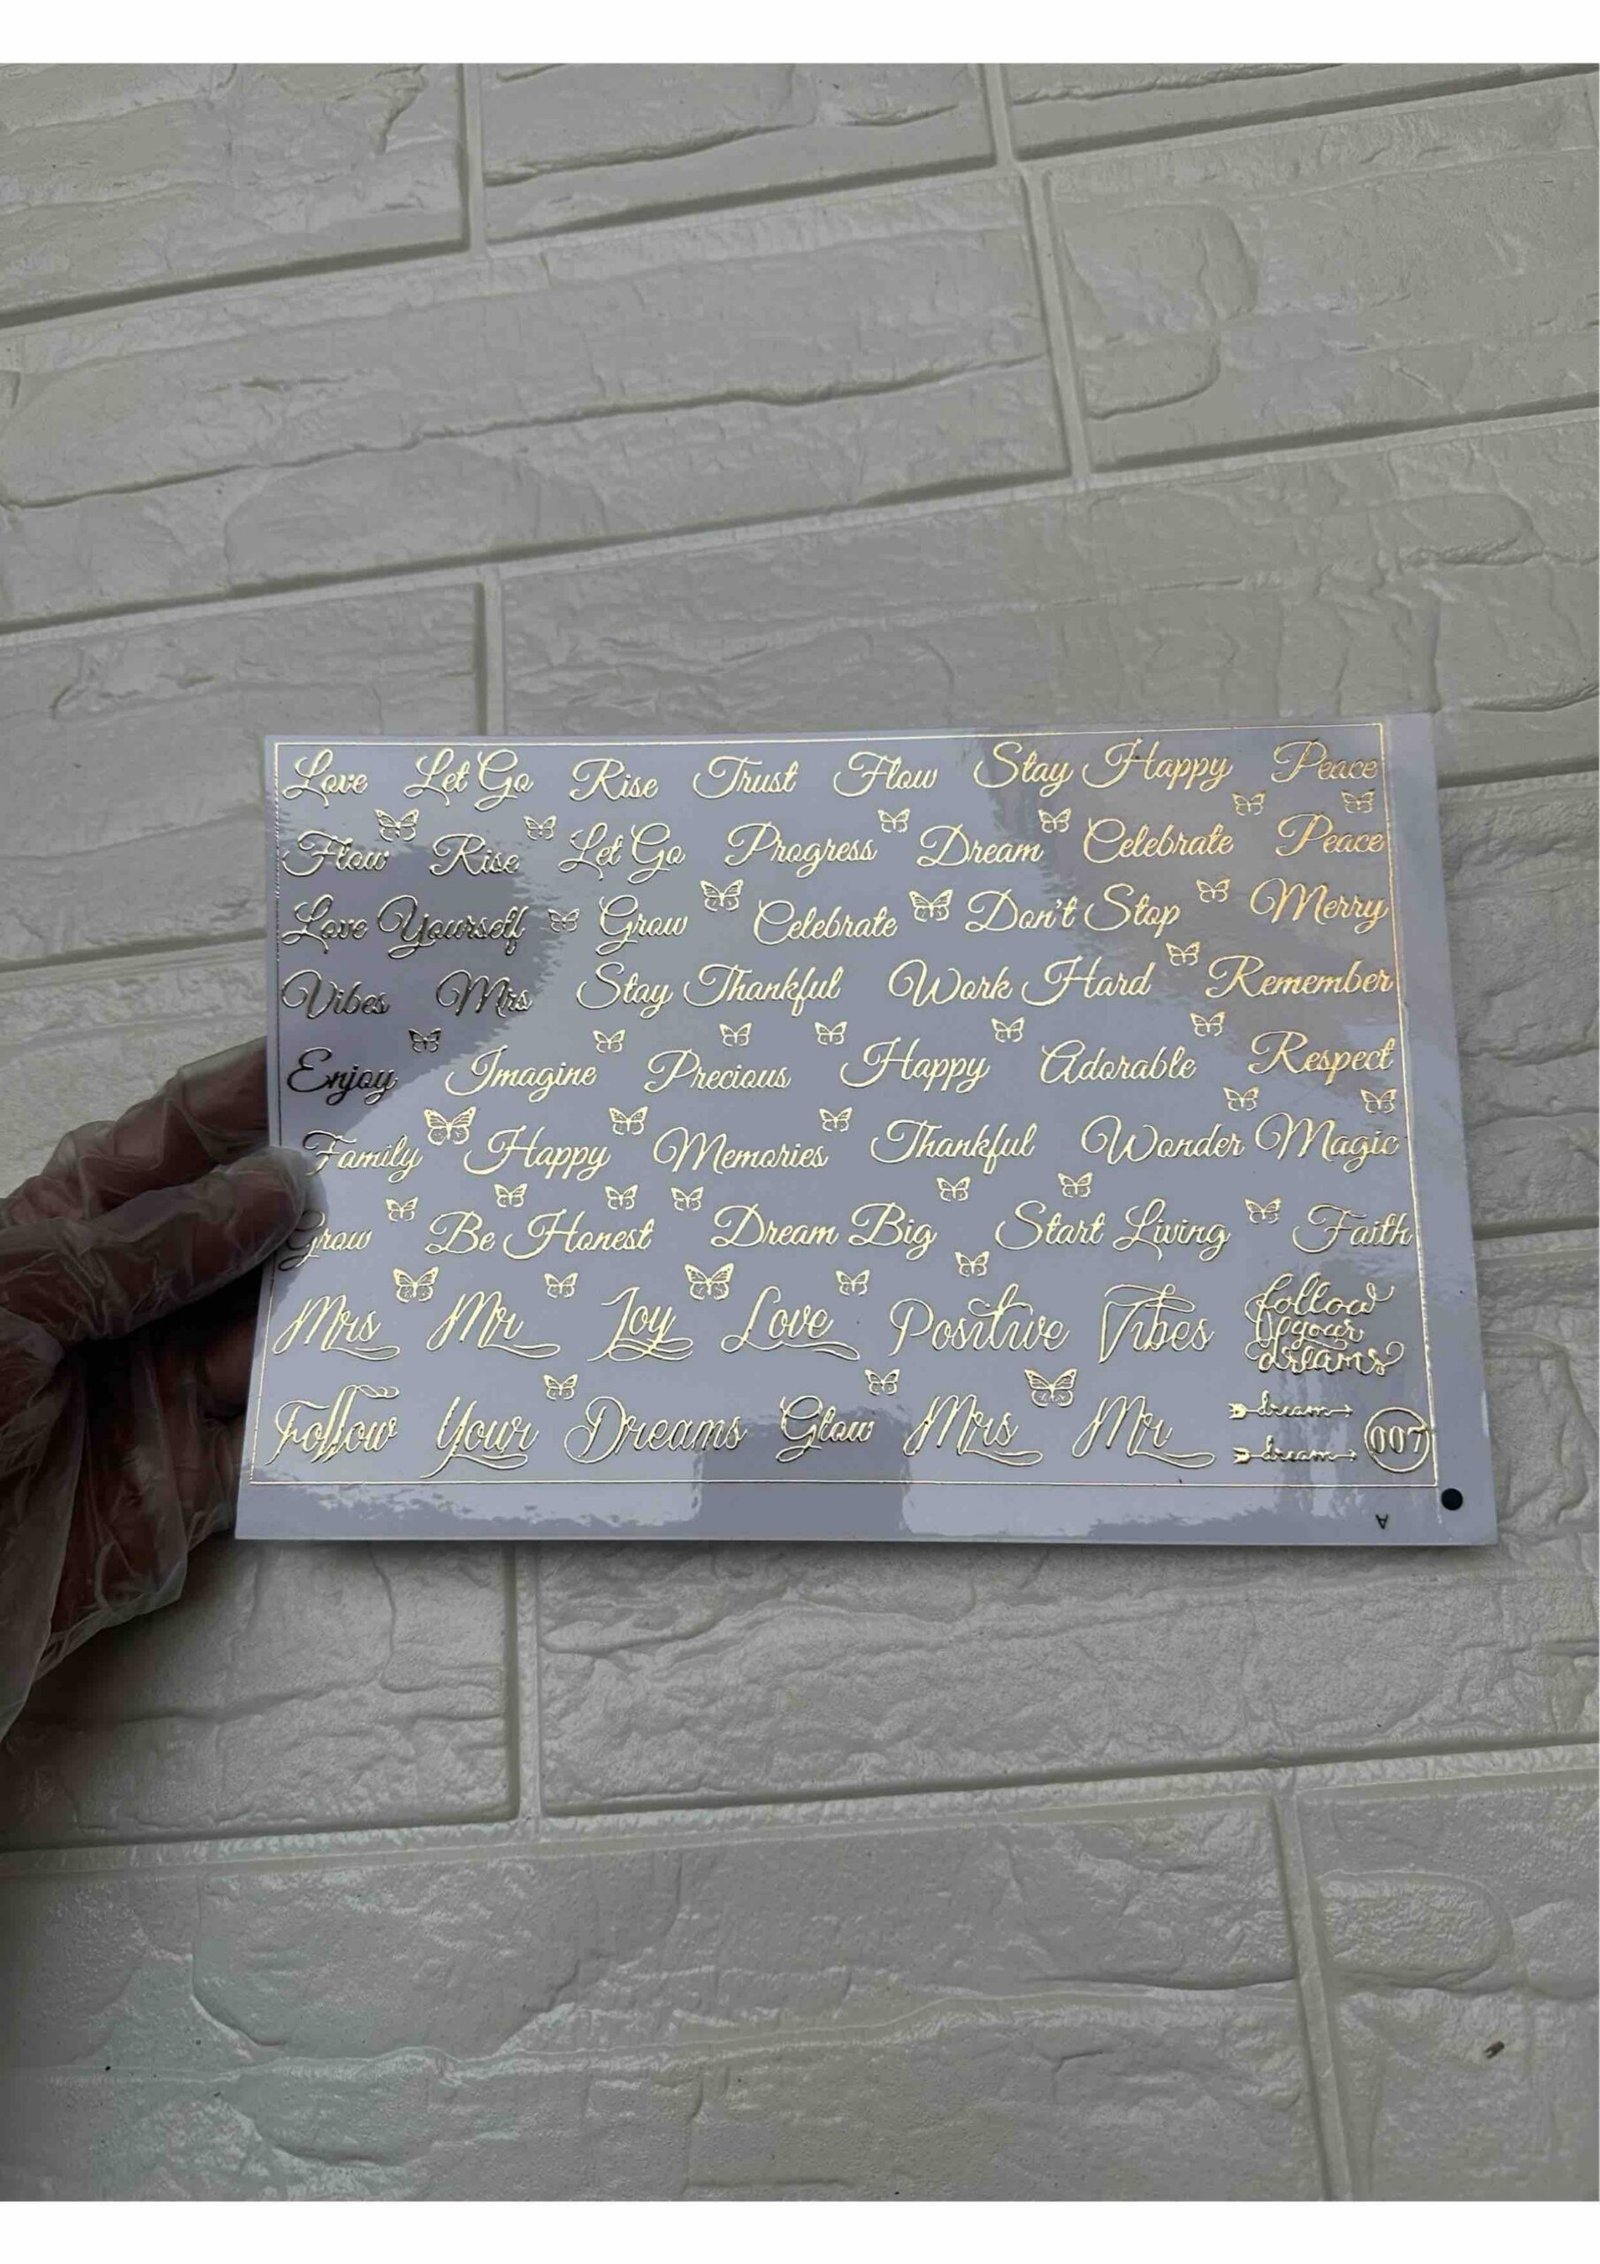 Love Let Go Rise Trust Flow Stay Happy Peace
Flow Rise Let Go Progress Dream Celebrate Peace
Love Yourself Grow Celebrate Don't Stop Merry
Vibes Mrs Stay Thankful Work Hard Remember
Enjoy Imagine Precious Happy Adorable Respect
Family Happy Memories Thankful Wonder Magic
Grow Be Honest Dream Big Start Living Faith
Mrs Mr Joy Love Positive Vibes
follow
your
dreams
Follow Your Dreams Glow Mrs Mr
dream
dream
007
A